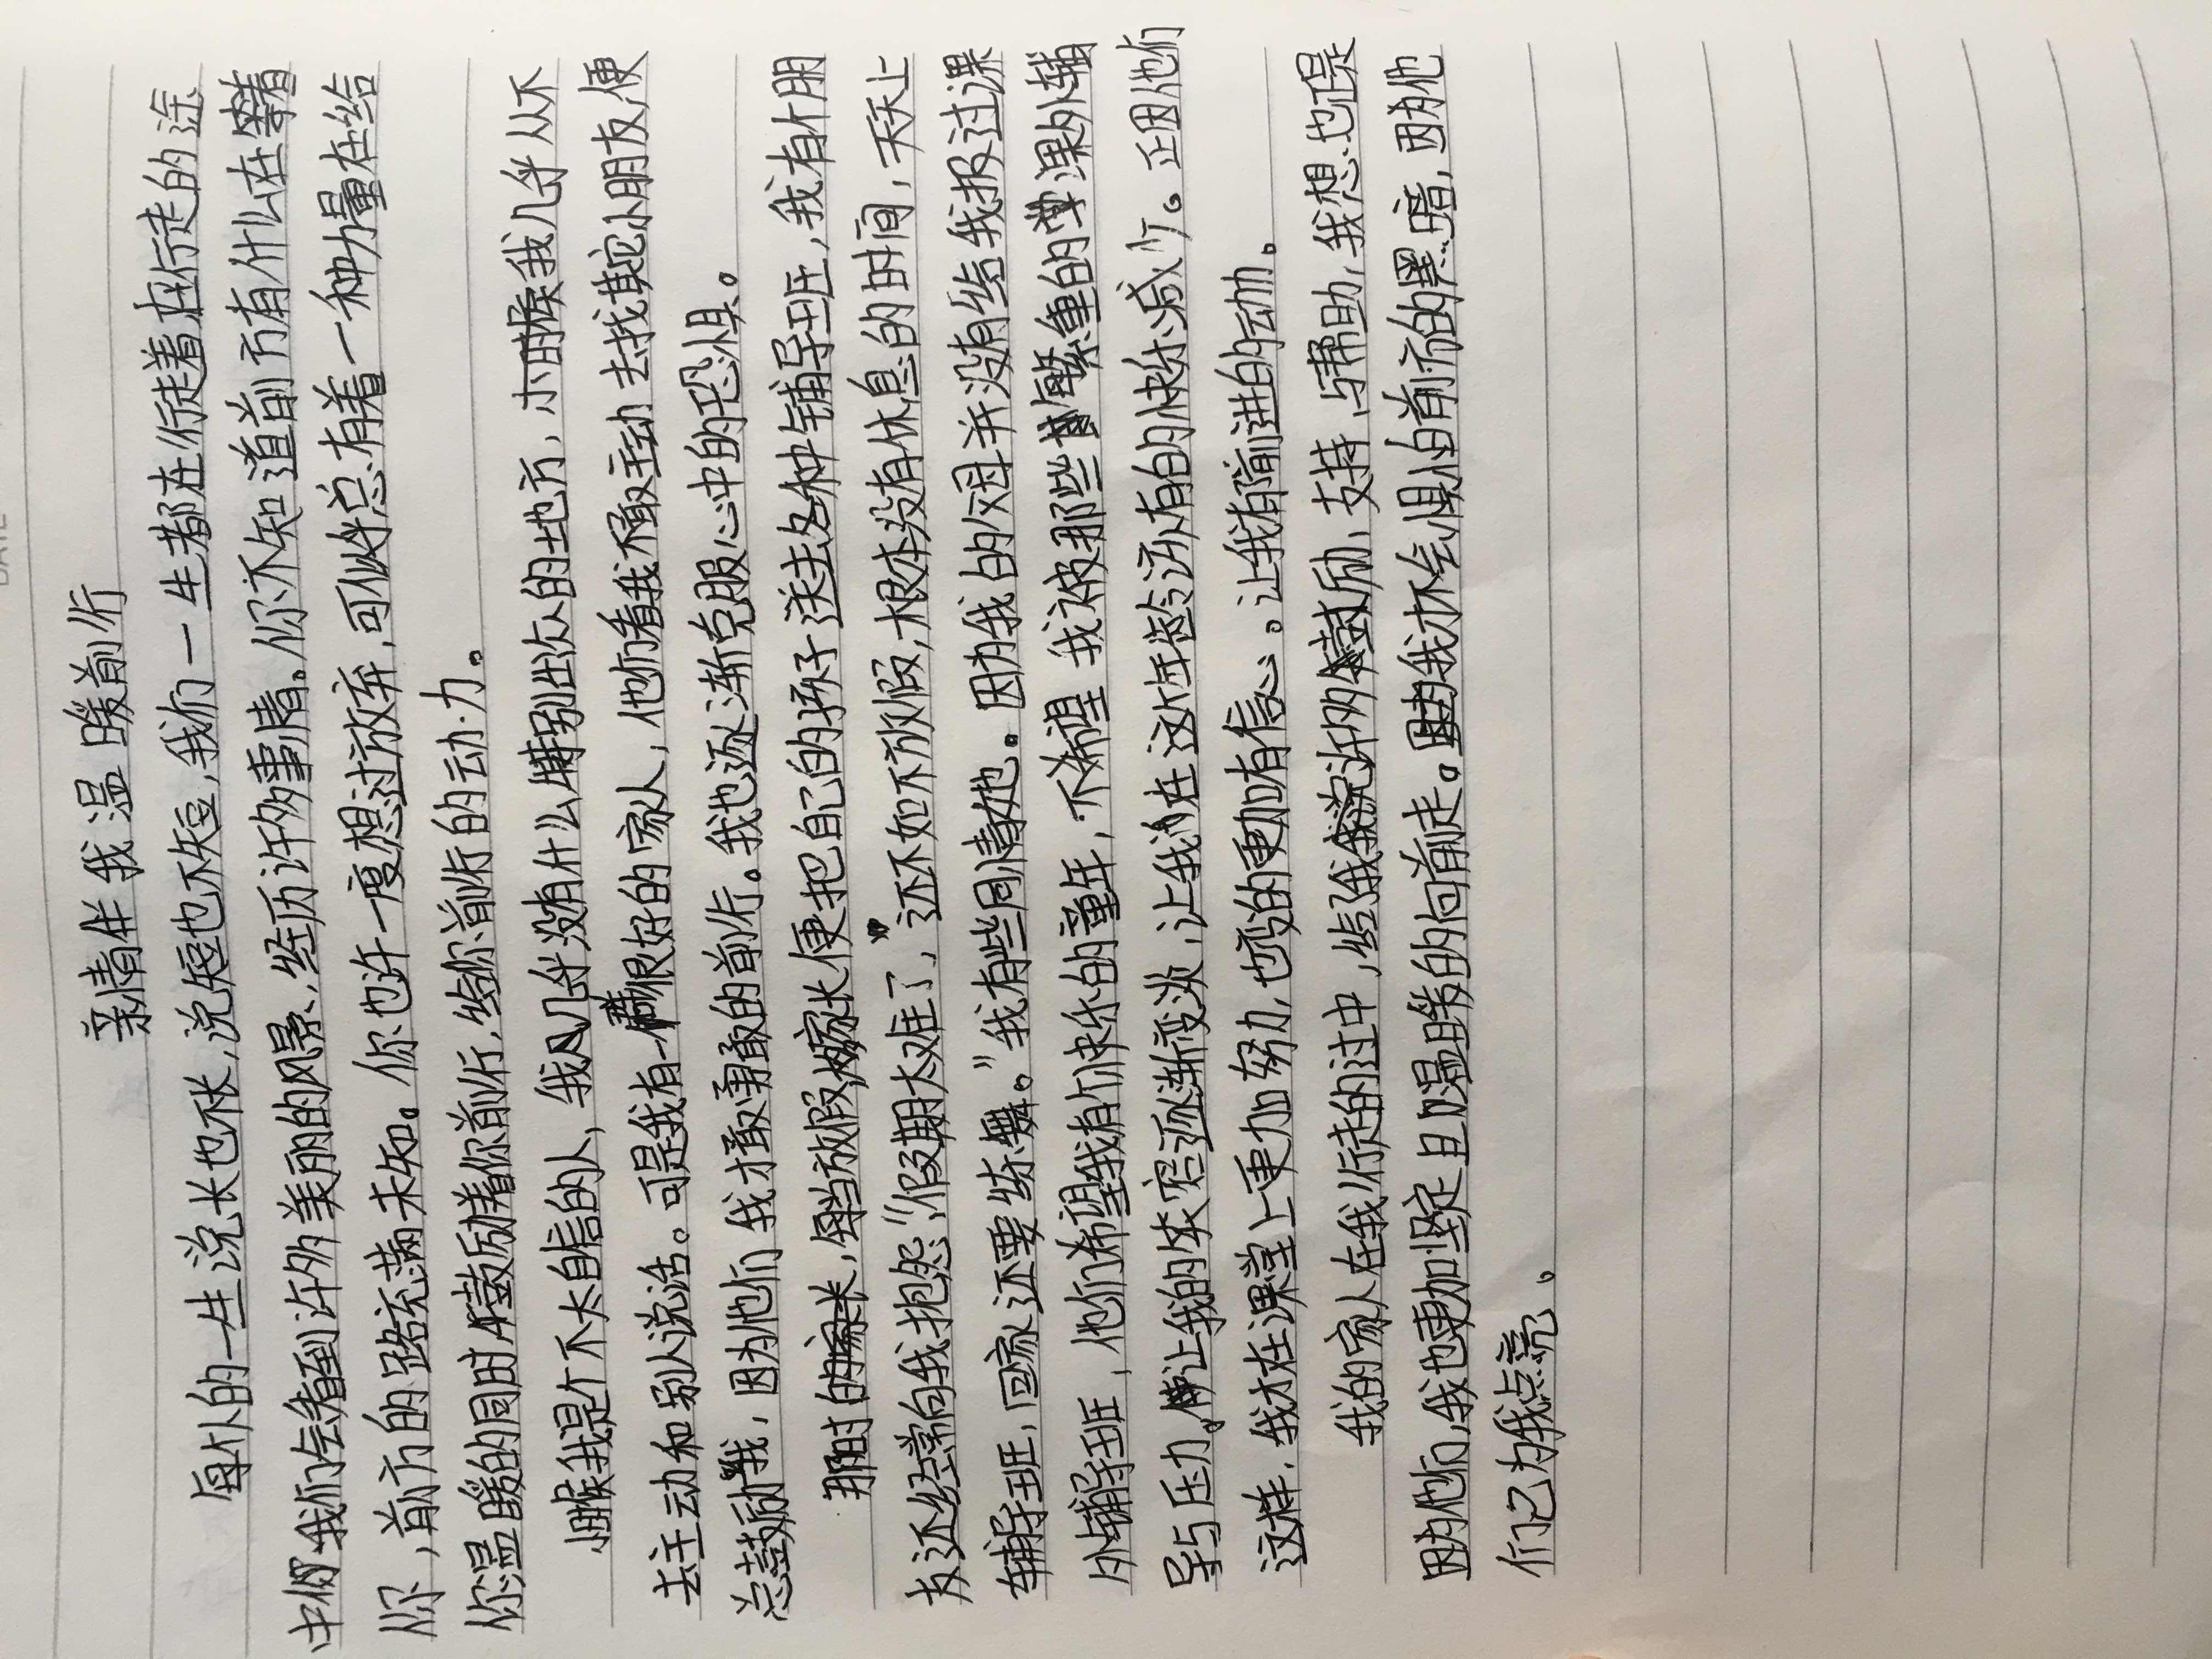 亲情伴我温暖前行
每个人的一生说长也不长,说短也不短,我们一生都在行走着在行走的途
中我们会看到许多美丽的风景,经历许多事情。你不知道前方有什么在等着
你,前方的路充满未知。你也许一度想过放弃,可似乎总有着一种力量在给
你温暖的同时鼓励着你前行,给你前行的动力。
小时候我是个不太自信的人,我几乎没有什么特别出众的地方,小时候我几乎从不
去主动和别人说话。可是我有一很好的家人,他们看我不敢主动去找其他小朋友,便
总鼓励我,因为他们我才敢勇敢的前行。我也逐渐克服心中的恐惧。
那时的家长,每当放假家长便把自己的孩子送去各种辅导班,我有个朋
友还经常向我抱怨:“假期太难了,还不如不放假,根本没有休息的时间,天天上
辅导班,回家还要练舞。”我有些同情她。因为我的父母并没有给我报过课
外辅导班,他们希望我有个快乐的童年,不希望我被那些繁重的课外辅
导与压力,让我的笑容逐渐变淡,让我在这个年龄该有的快乐减少。正因他们
这样,我才在课堂上更加努力,也变的更加有信心。让我有前进的动力。
我的家人在我行走的过中,给了我许多鼓励、支持、与帮助,我想也正是
因为他们,我也更加坚定且温暖的向前走。我才不会惧怕前方的黑暗,因为他
们已为我点亮。